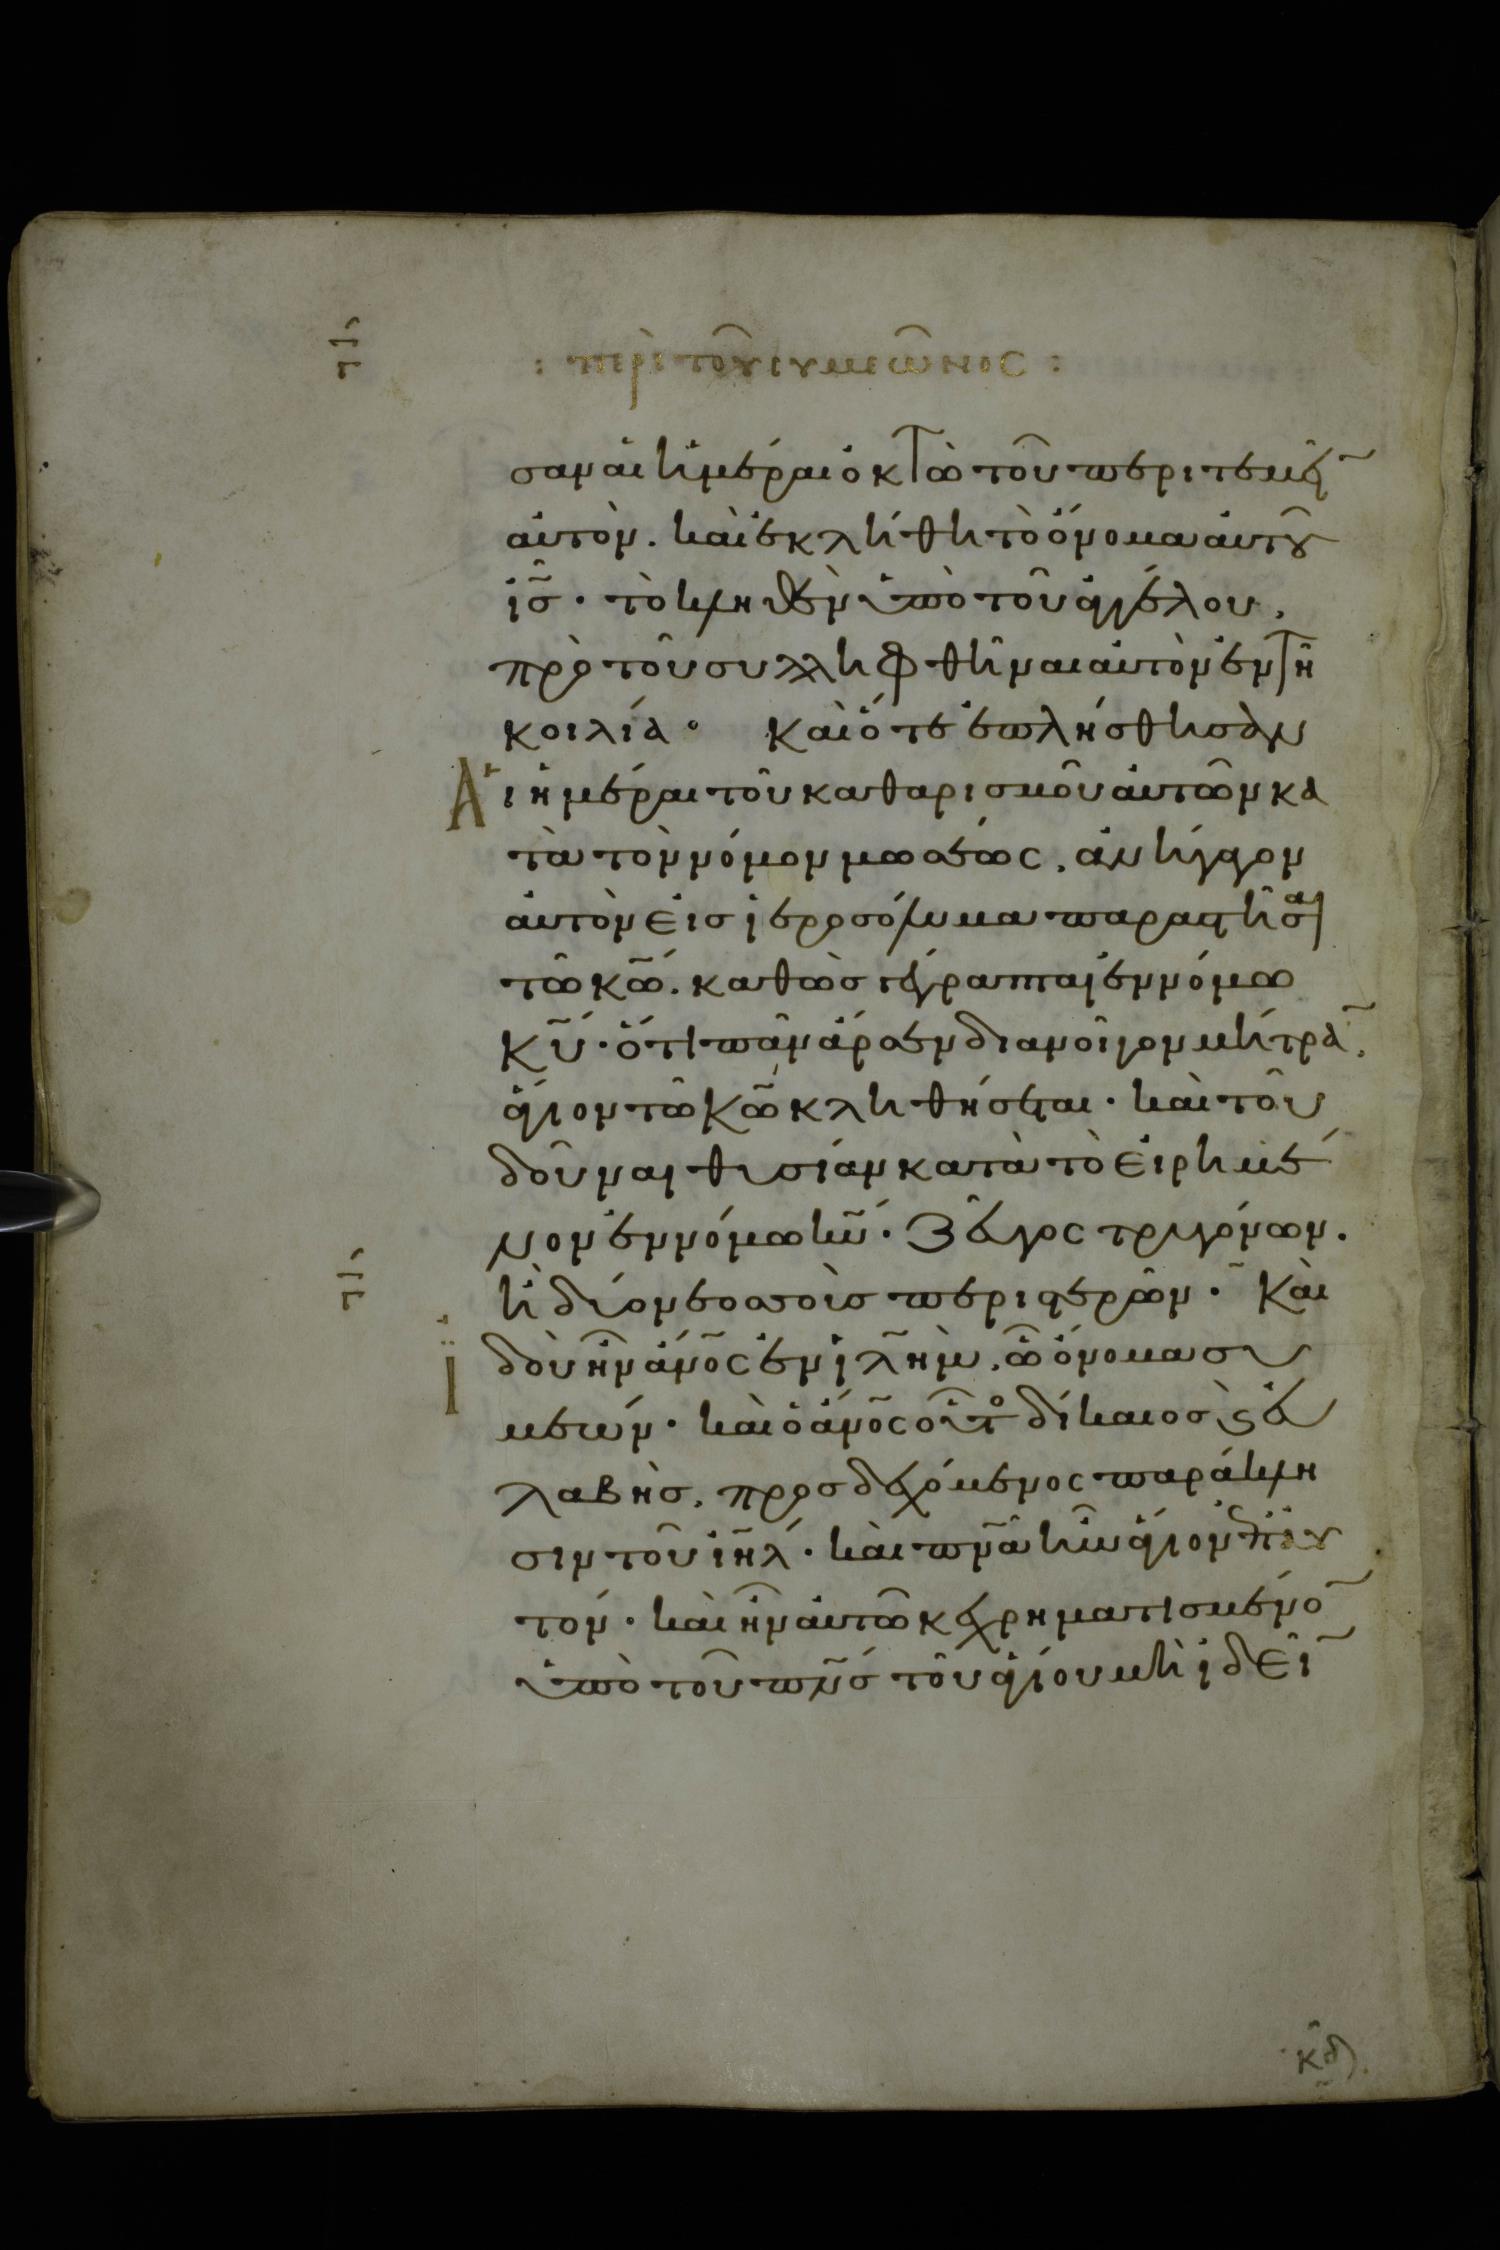 : περὶ τοῦ συμεῶνος :
σαν αἱ ἡμέραι ὀκτὼ τοῦ περιτεμεῖ̄
αὐτὸν. καὶ ἐκλήθη τὸ ὄνομα αὐτοῦ
ι̅ς̅ · τὸ κληθὲν ὑπὸ τοῦ ἀγγέλου,
πρὸ τοῦ συλληφθῆναι αὐτὸν ἐν τῆ
κοιλία · Καὶ ὅτε ἐπλήσθησαν
Αἱ ἡμέραι τοῦ καθαρισμοῦ αὐτῶν κα
τὰ τὸν νόμον μωσέως, ἀνήγαγον
αὐτὸν εἰς ἱεροσόλυμα παραστῆσαι
τῶ κ̅ω̅. καθὼς γέγραπται ἐν νόμω
κ̅υ̅ · ὅτι πᾶν ἄρσεν διανοῖγον μήτρα̅,
ἅγιον τῶ κ̅ω̅ κληθήσεται · καὶ τοῦ
δοῦναι θυσίαν κατὰ τὸ εἰρημέ
νον ἐν νόμω κ̅υ̅ · ζεῦγος τρυγόνων.
ἢ δύο νεοσσοὺς περιστερῶν · Καὶ
ἰδοὺ ἦν ἄν̅ο̅ς ἐν ἰλ̅ὴμ, ὧ ὄνομα συ
μεών · καὶ ὁ ἄν̅ο̅ς οὗτος δίκαιος ϗ εὐ
λαβὴς, προσδεχόμενος παράκλη
σιν τοῦ ἰη̅λ · καὶ πν̅ᾶ ἦν ἅγιον ἐπ' αὐ
τόν · καὶ ἦν αὐτῶ κεχρηματισμένο̅
ὑπὸ τοῦ πν̅ς τοῦ ἁγίου μὴ ἰδεῖ̅
κδ